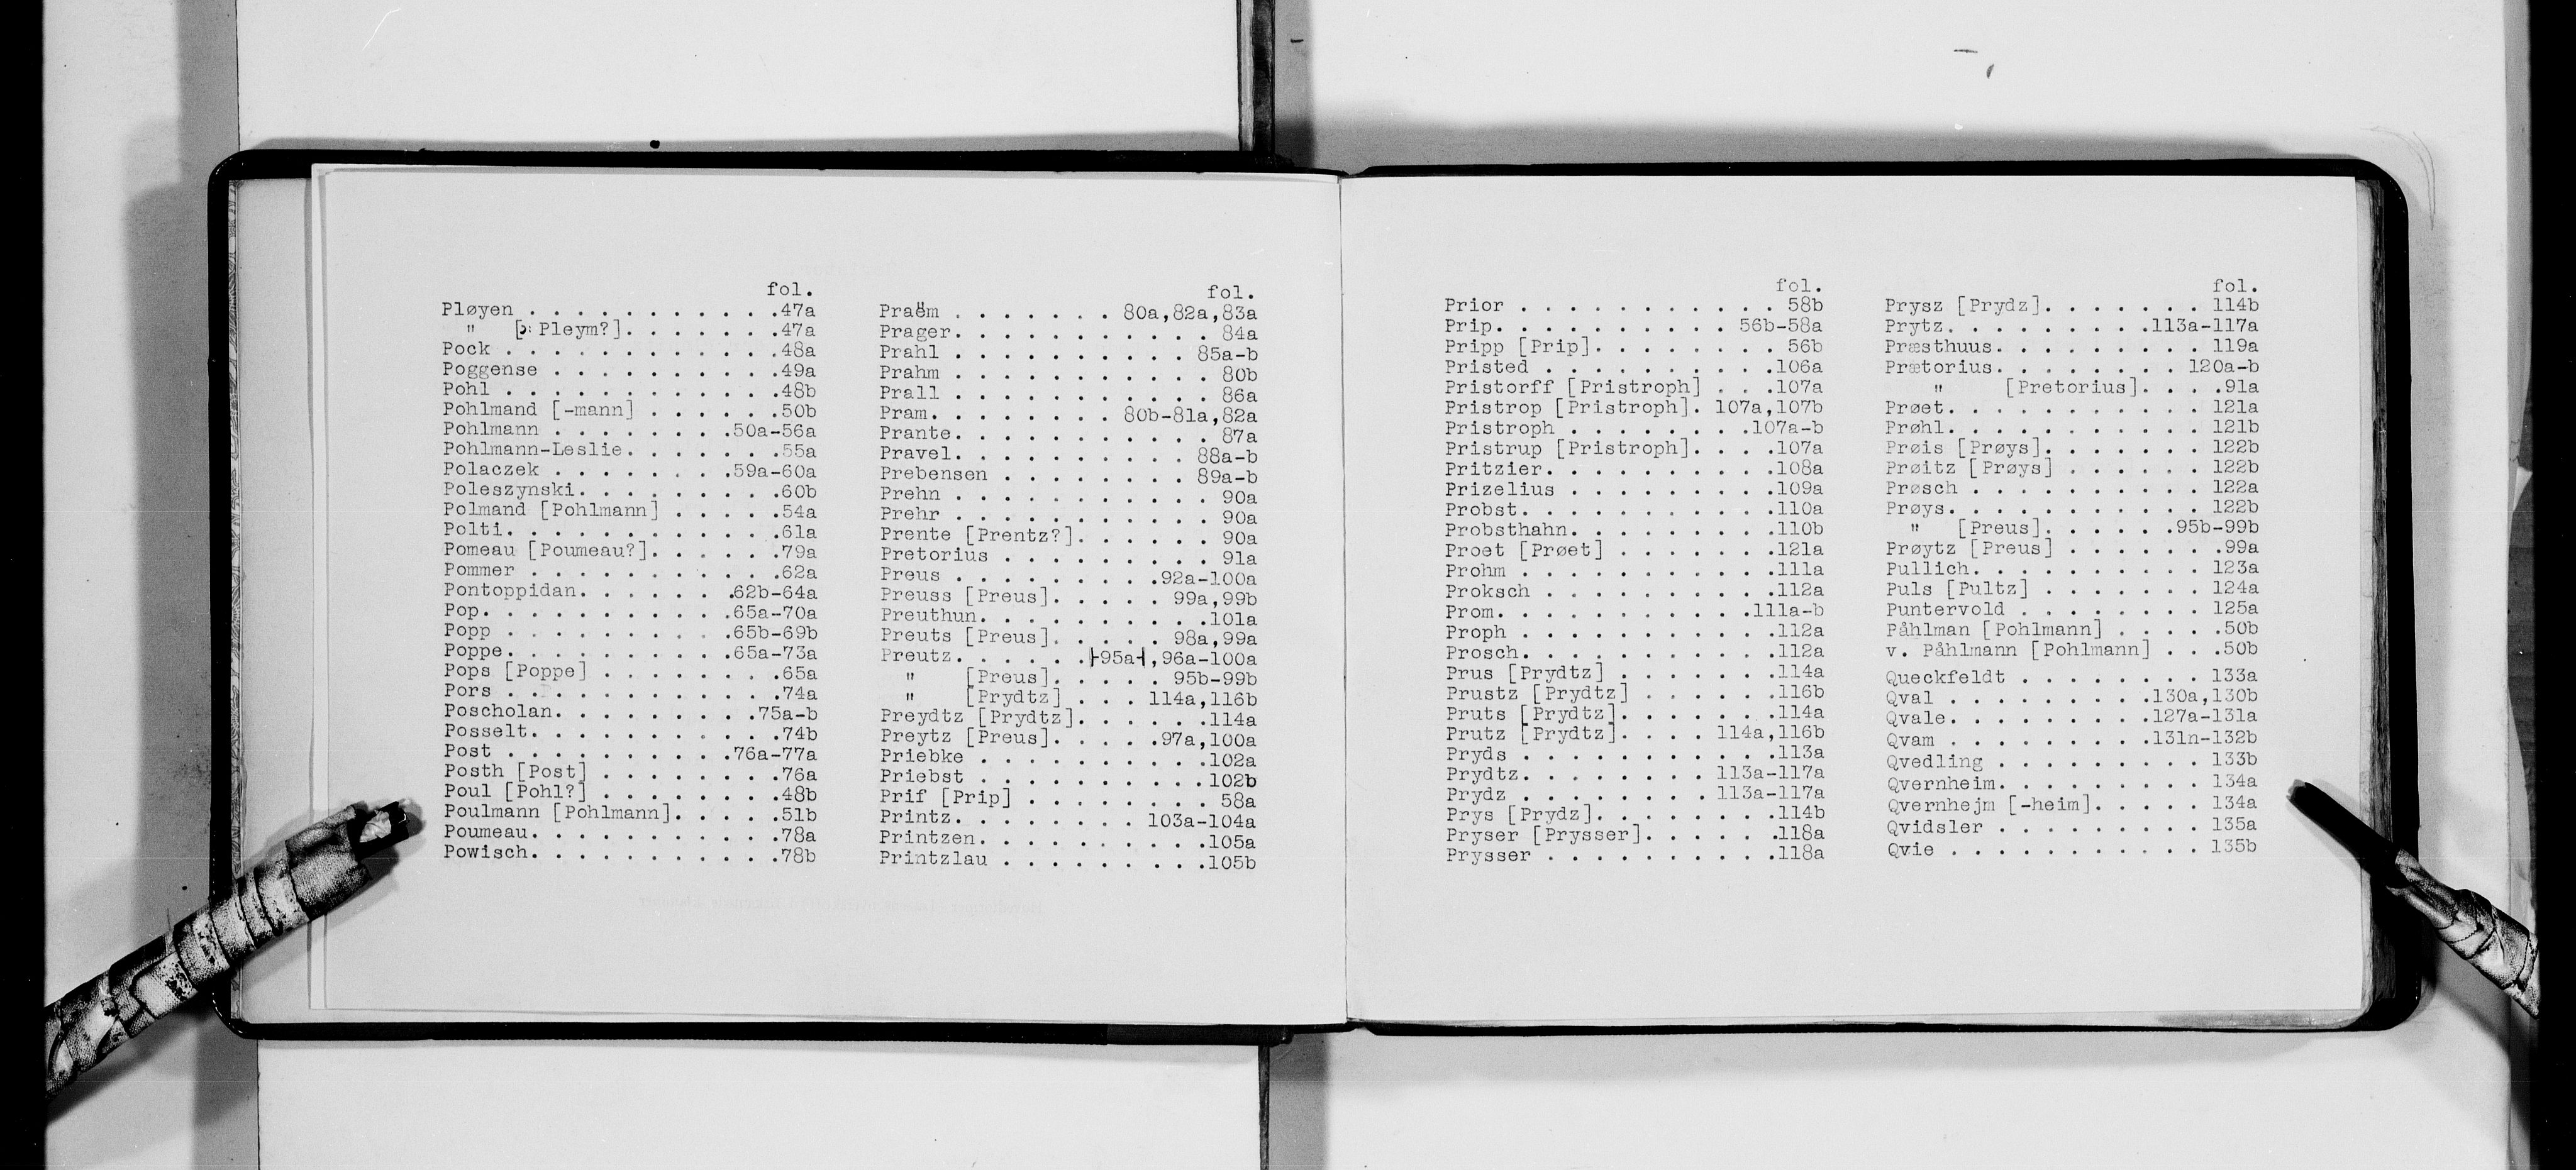 fol.
Pløyen . . . . . . . . . . . .47a
" [ɔ: Pleym?]. . . . . . .47a
Pock . . . . . . . . . . . .48a
Poggense . . . . . . . . . .49a
Pohl . . . . . . . . . . . .48b
Pohlmand [-mann] . . . . . .50b
Pohlmann . . . . . . . .50a-56a
Pohlmann-Leslie. . . . . . .55a
Polaczek . . . . . . . .59a-60a
Poleszynski. . . . . . . . .60b
Polmand [Pohlmann] . . . . .54a
Polti. . . . . . . . . . . .61a
Pomeau [Poumeau?]. . . . . .79a
Pommer . . . . . . . . . . .62a
Pontoppidan. . . . . . .62b-64a
Pop. . . . . . . . . . .65a-70a
Popp . . . . . . . . . .65b-69b
Poppe. . . . . . . . . .65a-73a
Pops [Poppe] . . . . . . . .65a
Pors . . . . . . . . . . . .74a
Poscholan. . . . . . . . .75a-b
Posselt. . . . . . . . . . .74b
Post . . . . . . . . . .76a-77a
Posth [Post] . . . . . . . .76a
Poul [Pohl?] . . . . . . . .48b
Poulmann [Pohlmann]. . . . .51b
Poumeau. . . . . . . . . . .78a
Powisch. . . . . . . . . . .78b
fol.
Praëm . . . . . . . 80a,82a,83a
Prager. . . . . . . . . . . 84a
Prahl . . . . . . . . . . 85a-b
Prahm . . . . . . . . . . . 80b
Prall . . . . . . . . . . . 86a
Pram. . . . . . . . 80b-81a,82a
Prante. . . . . . . . . . . 87a
Pravel. . . . . . . . . . 88a-b
Prebensen . . . . . . . . 89a-b
Prehn . . . . . . . . . . . 90a
Prehr . . . . . . . . . . . 90a
Prente [Prentz?]. . . . . . 90a
Pretorius . . . . . . . . . 91a
Preus . . . . . . . . .92a-100a
Preuss [Preus]. . . . . 99a,99b
Preuthun. . . . . . . . . .101a
Preuts [Preus]. . . . . 98a,99a
Preutz. . . . . . .⊦95a⊣,96a-100a
" [Preus]. . . . . 95b-99b
" [Prydtz] . . . 114a,116b
Preydtz [Prydtz]. . . . . .114a
Preytz [Preus]. . . . .97a,100a
Priebke . . . . . . . . . .102a
Priebst . . . . . . . . . .102b
Prif [Prip] . . . . . . . . 58a
Printz. . . . . . . . 103a-104a
Printzen. . . . . . . . . .105a
Printzlau . . . . . . . . .105b
fol.
Prior . . . . . . . . . . . 58b
Prip. . . . . . . . . . 56b-58a
Pripp [Prip]. . . . . . . . 56b
Pristed . . . . . . . . . .106a
Pristorff [Pristroph] . . .107a
Pristrop [Pristroph]. 107a,107b
Pristroph . . . . . . . .107a-b
Pristrup [Pristroph]. . . .107a
Pritzier. . . . . . . . . .108a
Prizelius . . . . . . . . .109a
Probst. . . . . . . . . . .110a
Probsthahn. . . . . . . . .110b
Proet [Prøet] . . . . . . .121a
Prohm . . . . . . . . . . .111a
Proksch . . . . . . . . . .112a
Prom. . . . . . . . . . .111a-b
Proph . . . . . . . . . . .112a
Prosch. . . . . . . . . . .112a
Prus [Prydtz] . . . . . . .114a
Prustz [Prydtz] . . . . . .116b
Pruts [Prydtz]. . . . . . .114a
Prutz [Prydtz]. . . . 114a,116b
Pryds . . . . . . . . . . .113a
Prydtz. . . . . . . . 113a-117a
Prydz . . . . . . . . 113a-117a
Prys [Prydz]. . . . . . . .114b
Pryser [Prysser]. . . . . .118a
Prysser . . . . . . . . . .118a
fol.
Prysz [Prydz]. . . . . . . 114b
Prytz. . . . . . . . .113a-117a
Præsthuus. . . . . . . . . 119a
Prætorius. . . . . . . . 120a-b
" [Pretorius]. . . .91a
Prøet. . . . . . . . . . . 121a
Prøhl. . . . . . . . . . . 121b
Prøis [Prøys]. . . . . . . 122b
Prøitz [Prøys] . . . . . . 122b
Prøsch . . . . . . . . . . 122a
Prøys. . . . . . . . . . . 122b
" [Preus]. . . . . .95b-99b
Prøytz [Preus] . . . . . . .99a
Pullich. . . . . . . . . . 123a
Puls [Pultz] . . . . . . . 124a
Puntervold . . . . . . . . 125a
Påhlman [Pohlmann] . . . . .50b
v. Påhlmann [Pohlmann] . . .50b
Queckfeldt . . . . . . . . 133a
Qval . . . . . . . . .130a,130b
Qvale. . . . . . . . .127a-131a
Qvam . . . . . . . . .131n-132b
Qvedling . . . . . . . . . 133b
Qvernheim. . . . . . . . . 134a
Qvernhejm [-heim]. . . . . 134a
Qvidsler . . . . . . . . . 135a
Qvie . . . . . . . . . . . 135b